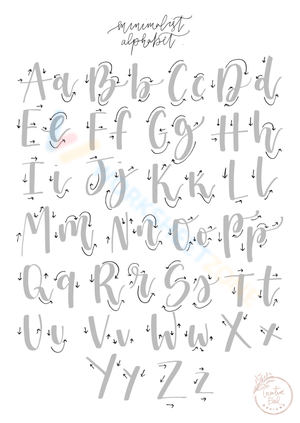 minimalist
alphabet
Aa Bb Cc Dd
Ee Ff Gg Hh
Ii Jj Kk Ll
Mm Nn Oo Pp
Qq Rr Ss Tt
Uu Vv Ww Xx
Yy Zz
Creative